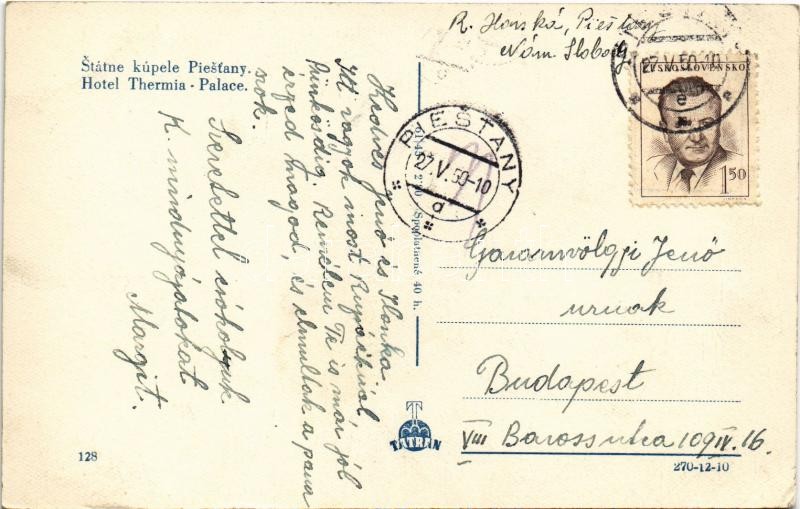 Štátne kúpele Piešťany.
Hotel Thermia - Palace.
Kedves Jenő és Ilonka
Itt vagyok most Rupóéknál
Pünkösdig. Remélem Te is már jól
érzed magad, és elmultak a pana
szok.
Szeretettel csókoljuk
K mindnyájatokat
Margit.
128
Spoplatnené 40 h.
TATRAN
R. Horská, Piešťany
Nám. Slobody
PIEŠŤANY
27.V.50-10
d
ČESKOSLOVENSKO
27.V.50-10
e
1.50
Garamvölgyi Jenő
urnak
Budapest
VIII Baross utca 109 IV. 16.
270-12-10